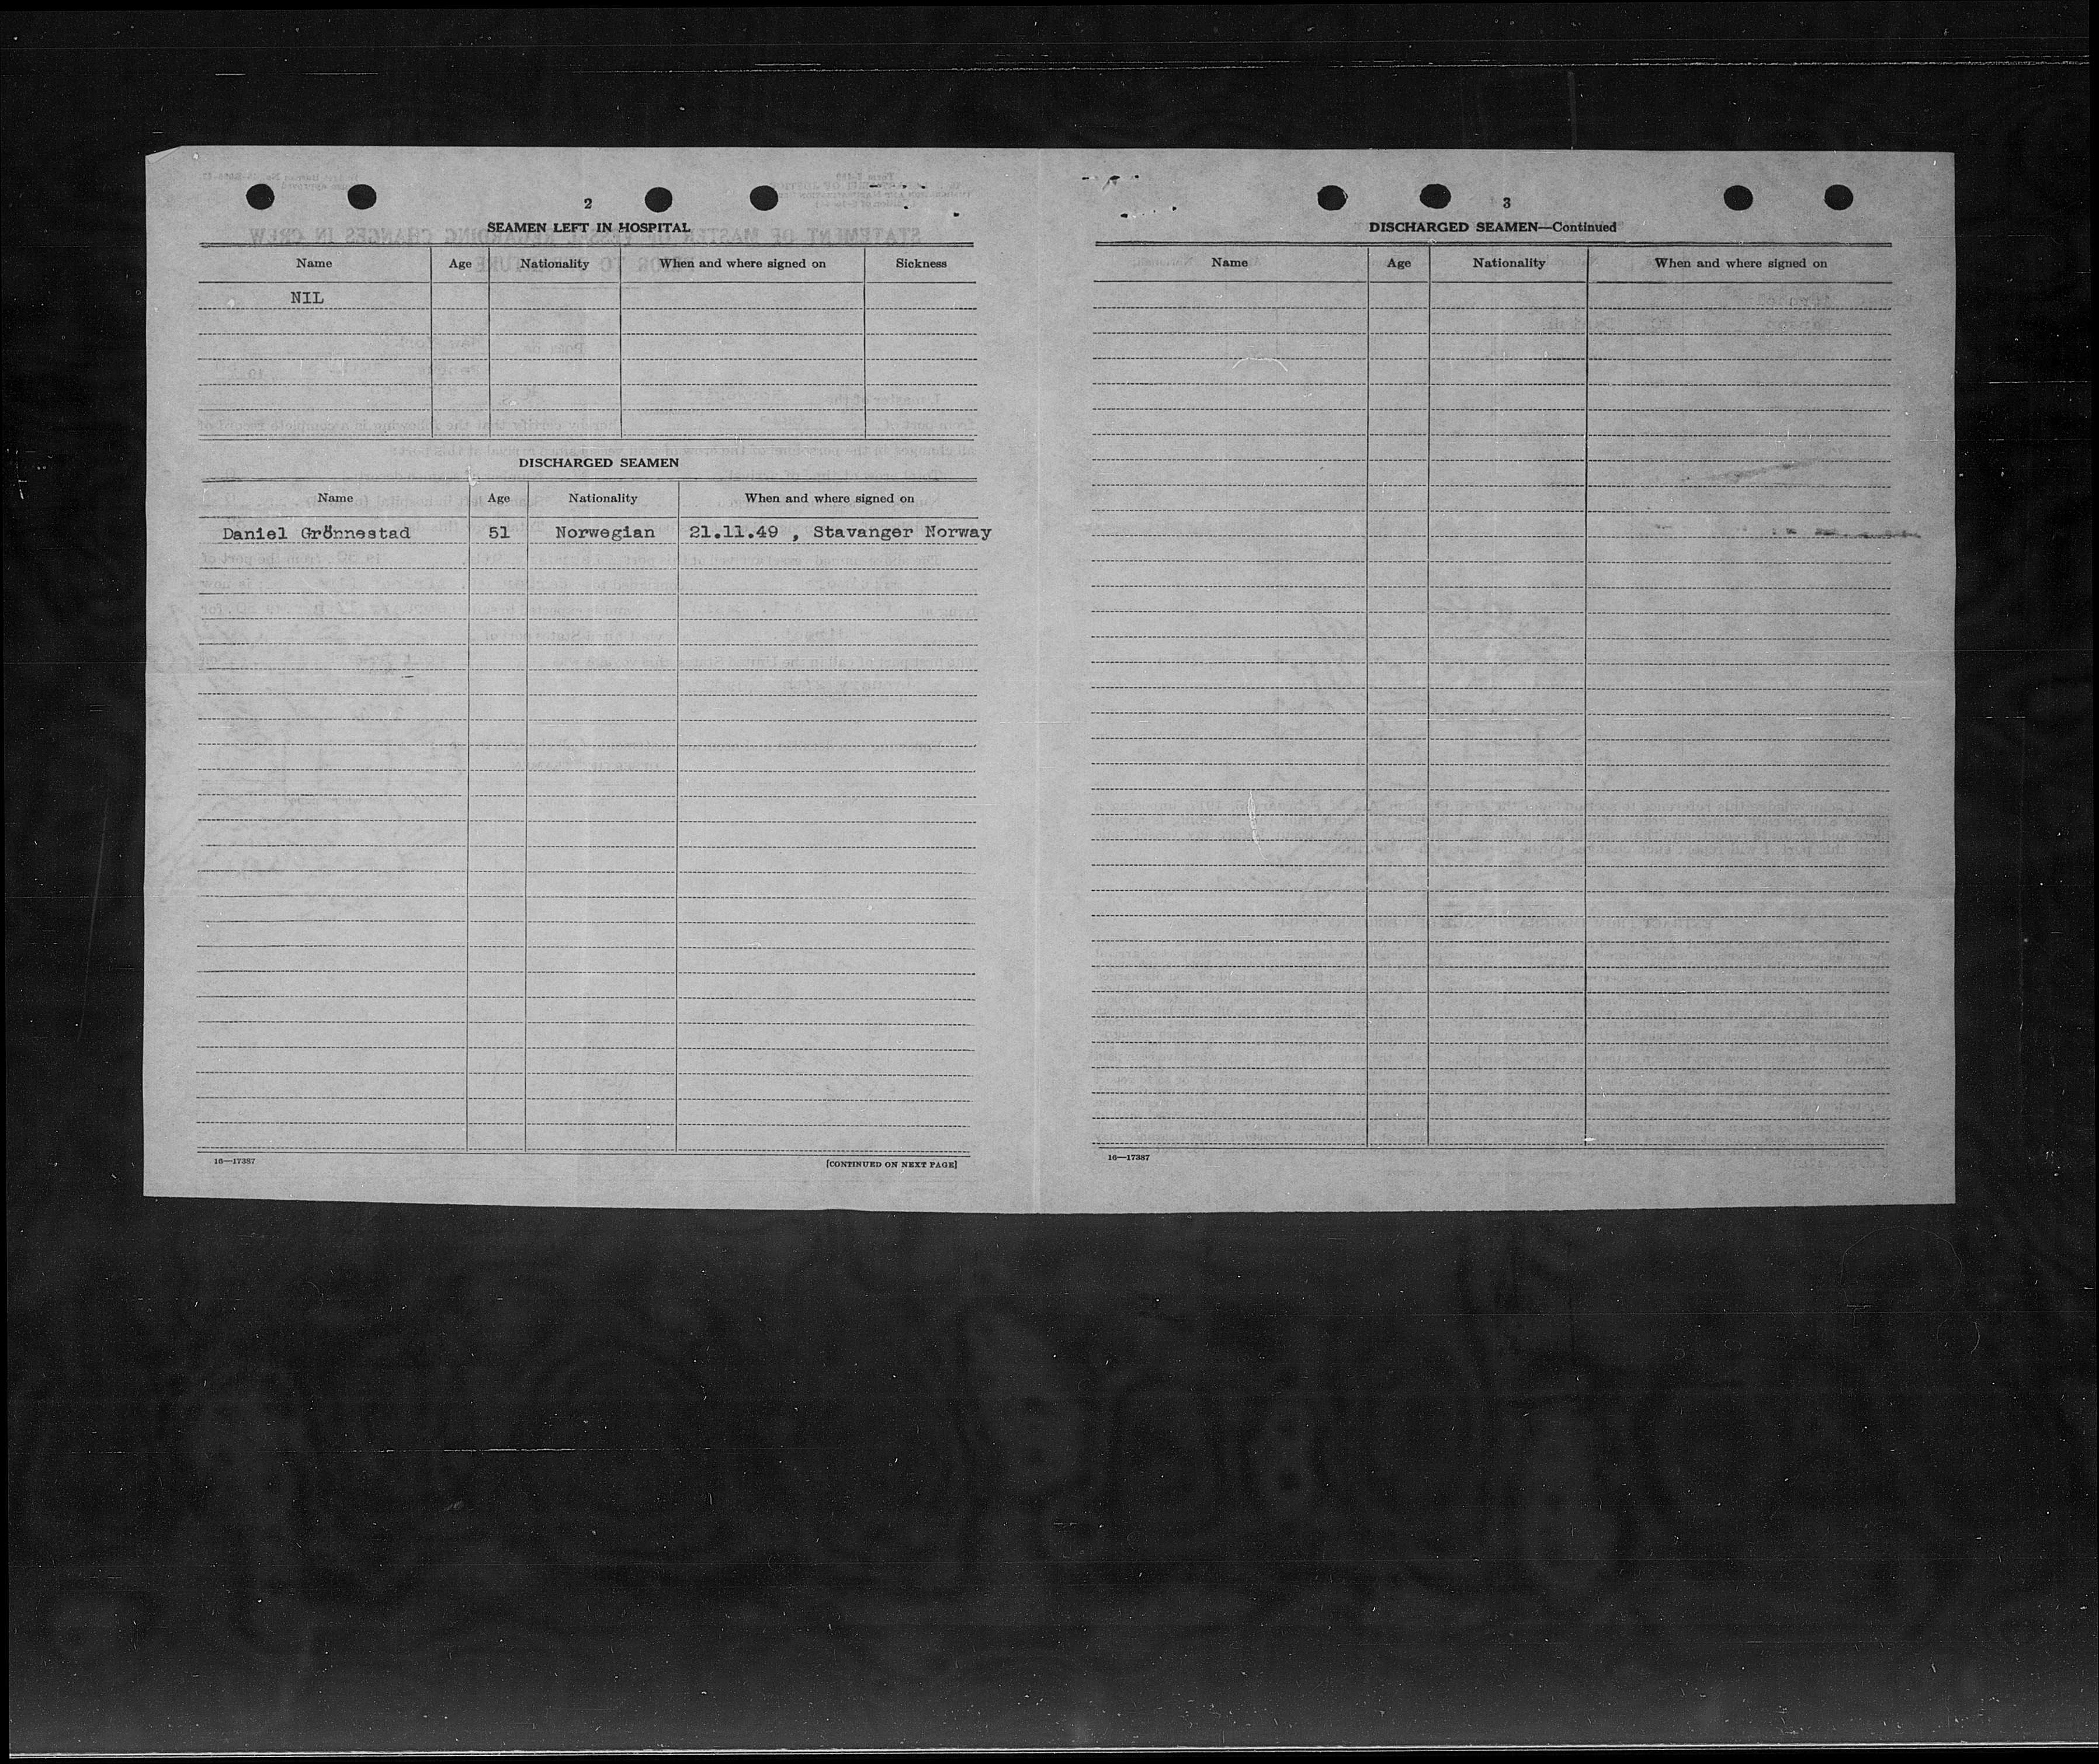 2
SEAMEN LEFT IN HOSPITAL
Name Age Nationality When and where signed on Sickness
NIL
DISCHARGED SEAMEN
Name Age Nationality When and where signed on
Daniel Grönnestad 51 Norwegian 21.11.49 , Stavanger Norway
16—17387 [CONTINUED ON NEXT PAGE]
3
DISCHARGED SEAMEN—Continued
Name Age Nationality When and where signed on
16—17387